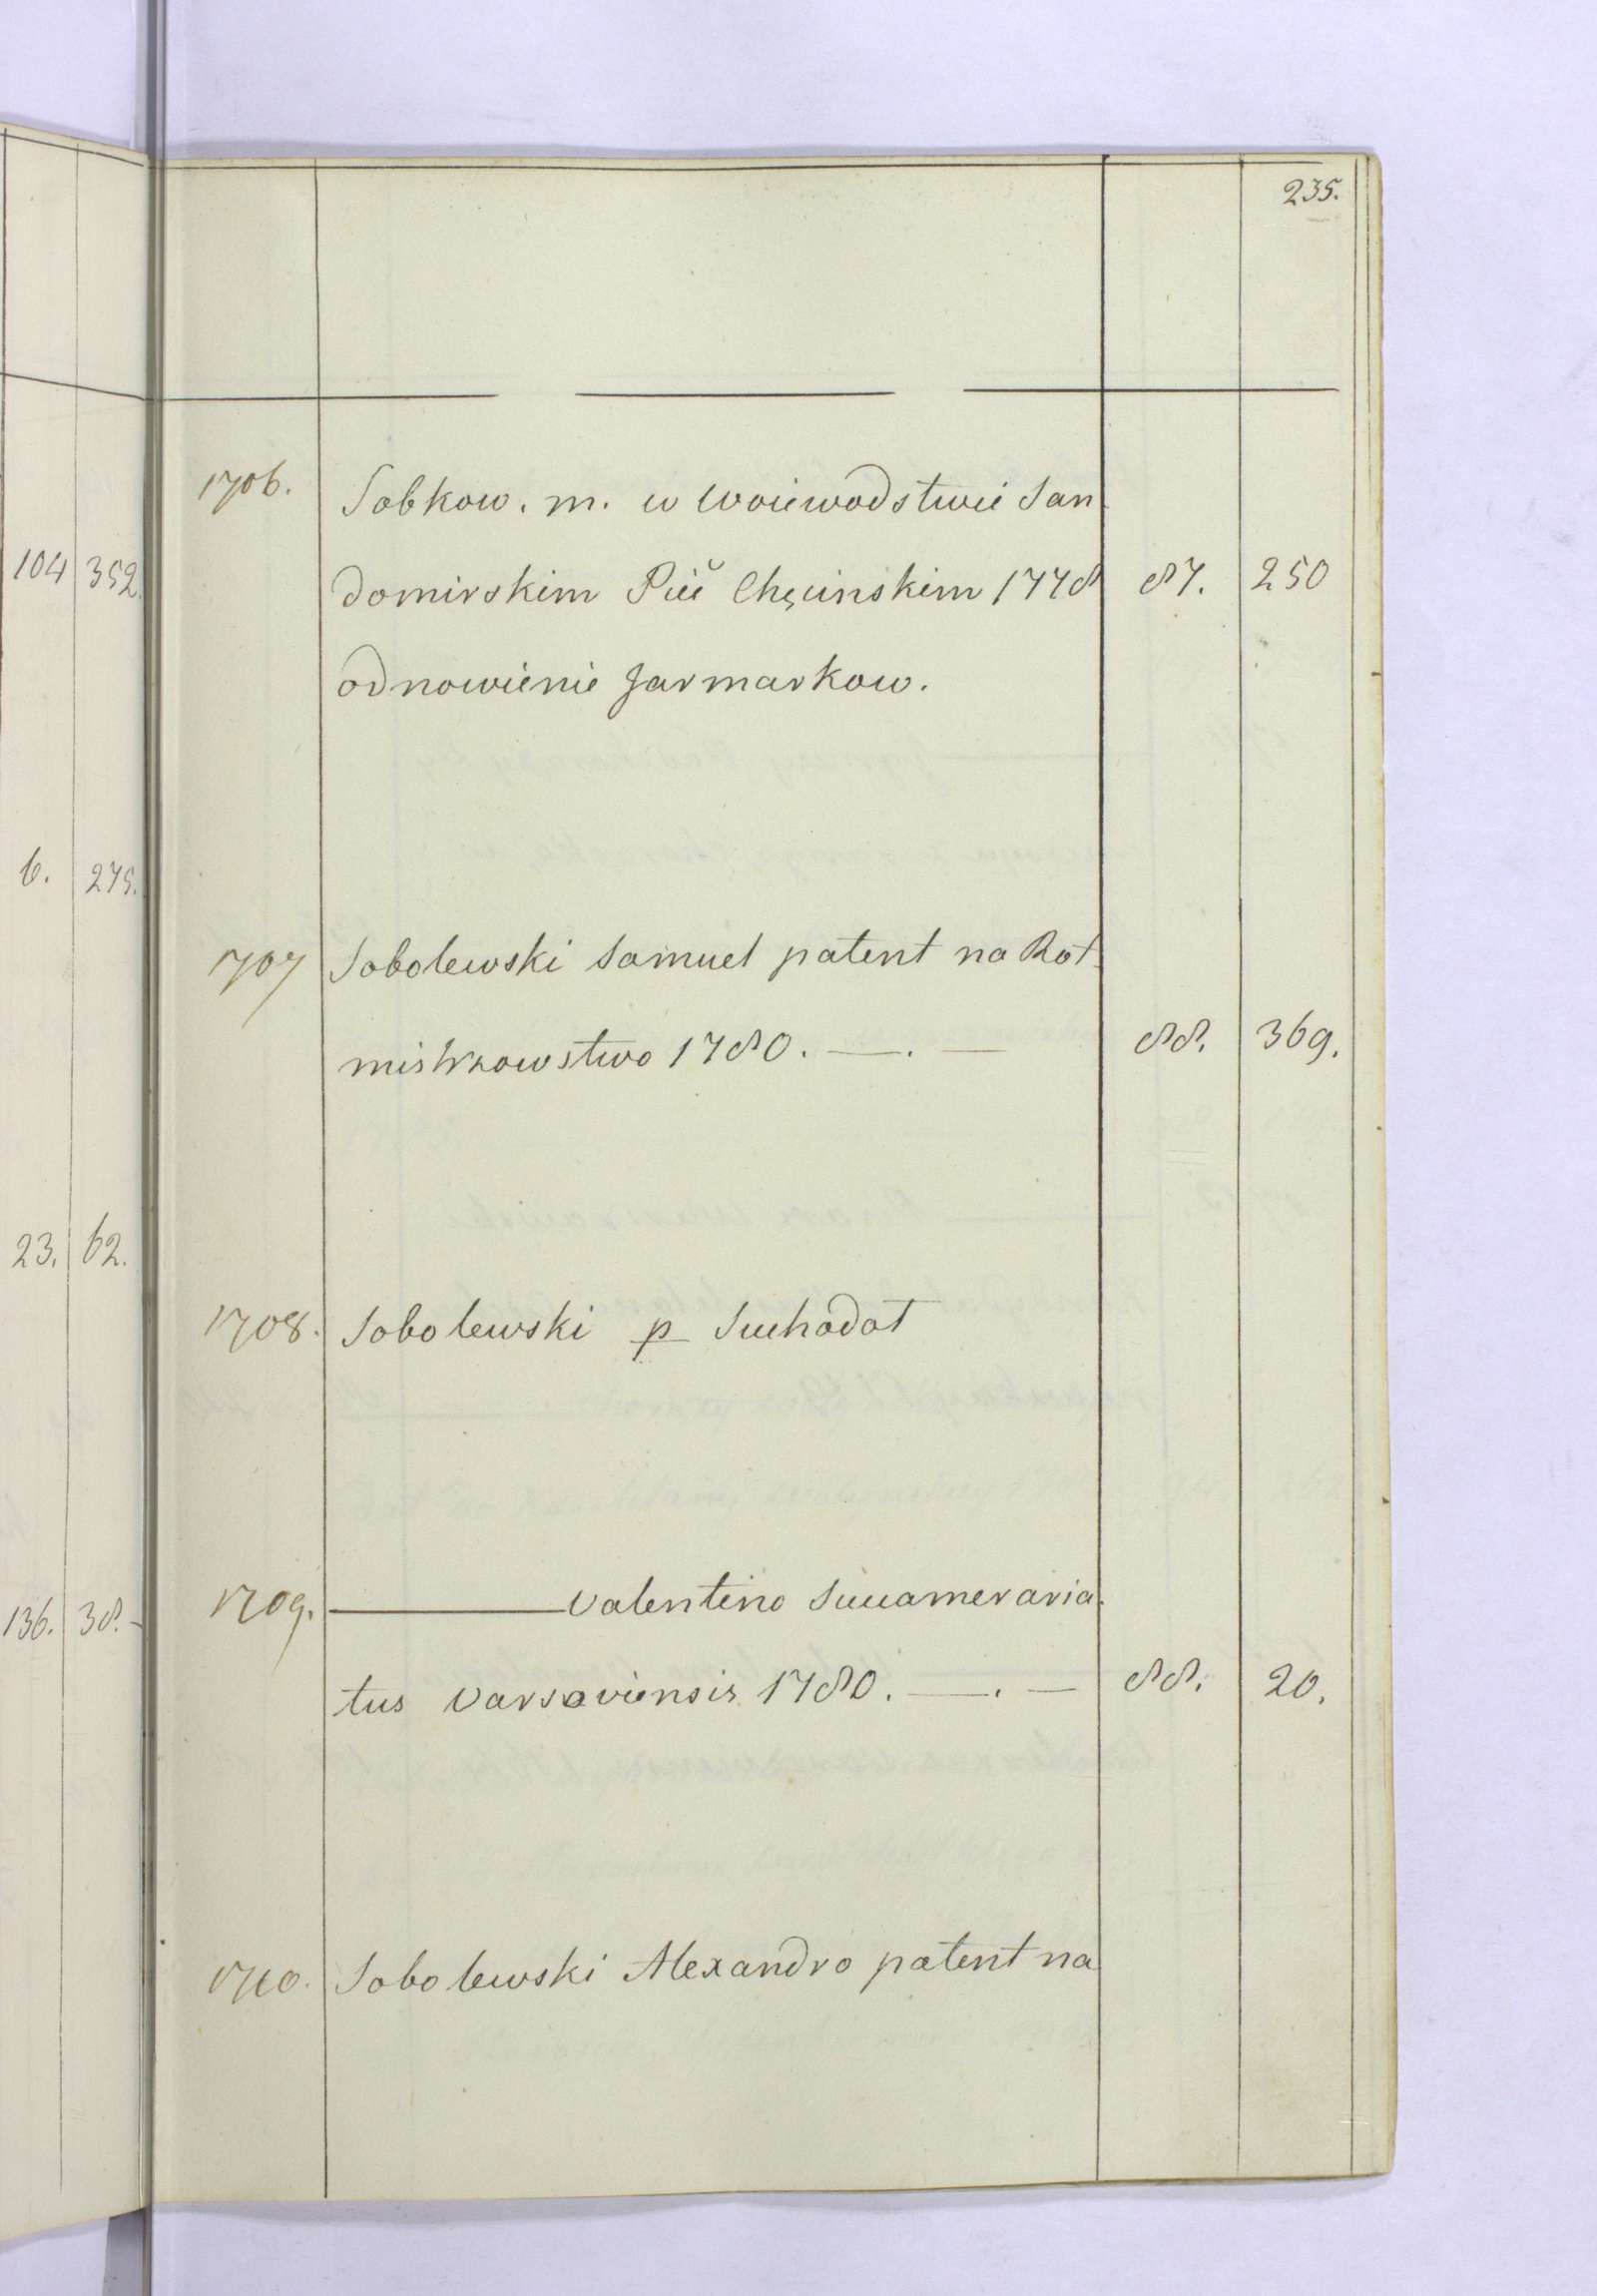 235.
104 352.
6. 275.
23. 62.
136. 38.
1706. Sobkow. m. w Woiewodstwie San
domirskim Chęcinskim 1778 87. 250
odnowienie Jarmarkow.
1707 Sobolewski Samuel patent na Rot
mistrzowstwo 1780. —. — 88. 369.
1708. Sobolewski p Suchodoł
1709. ——— Valentino Succameraria
tus Varsaviensis 1780. —. — 88. 20.
1710. Sobolewski Alexandro patent na